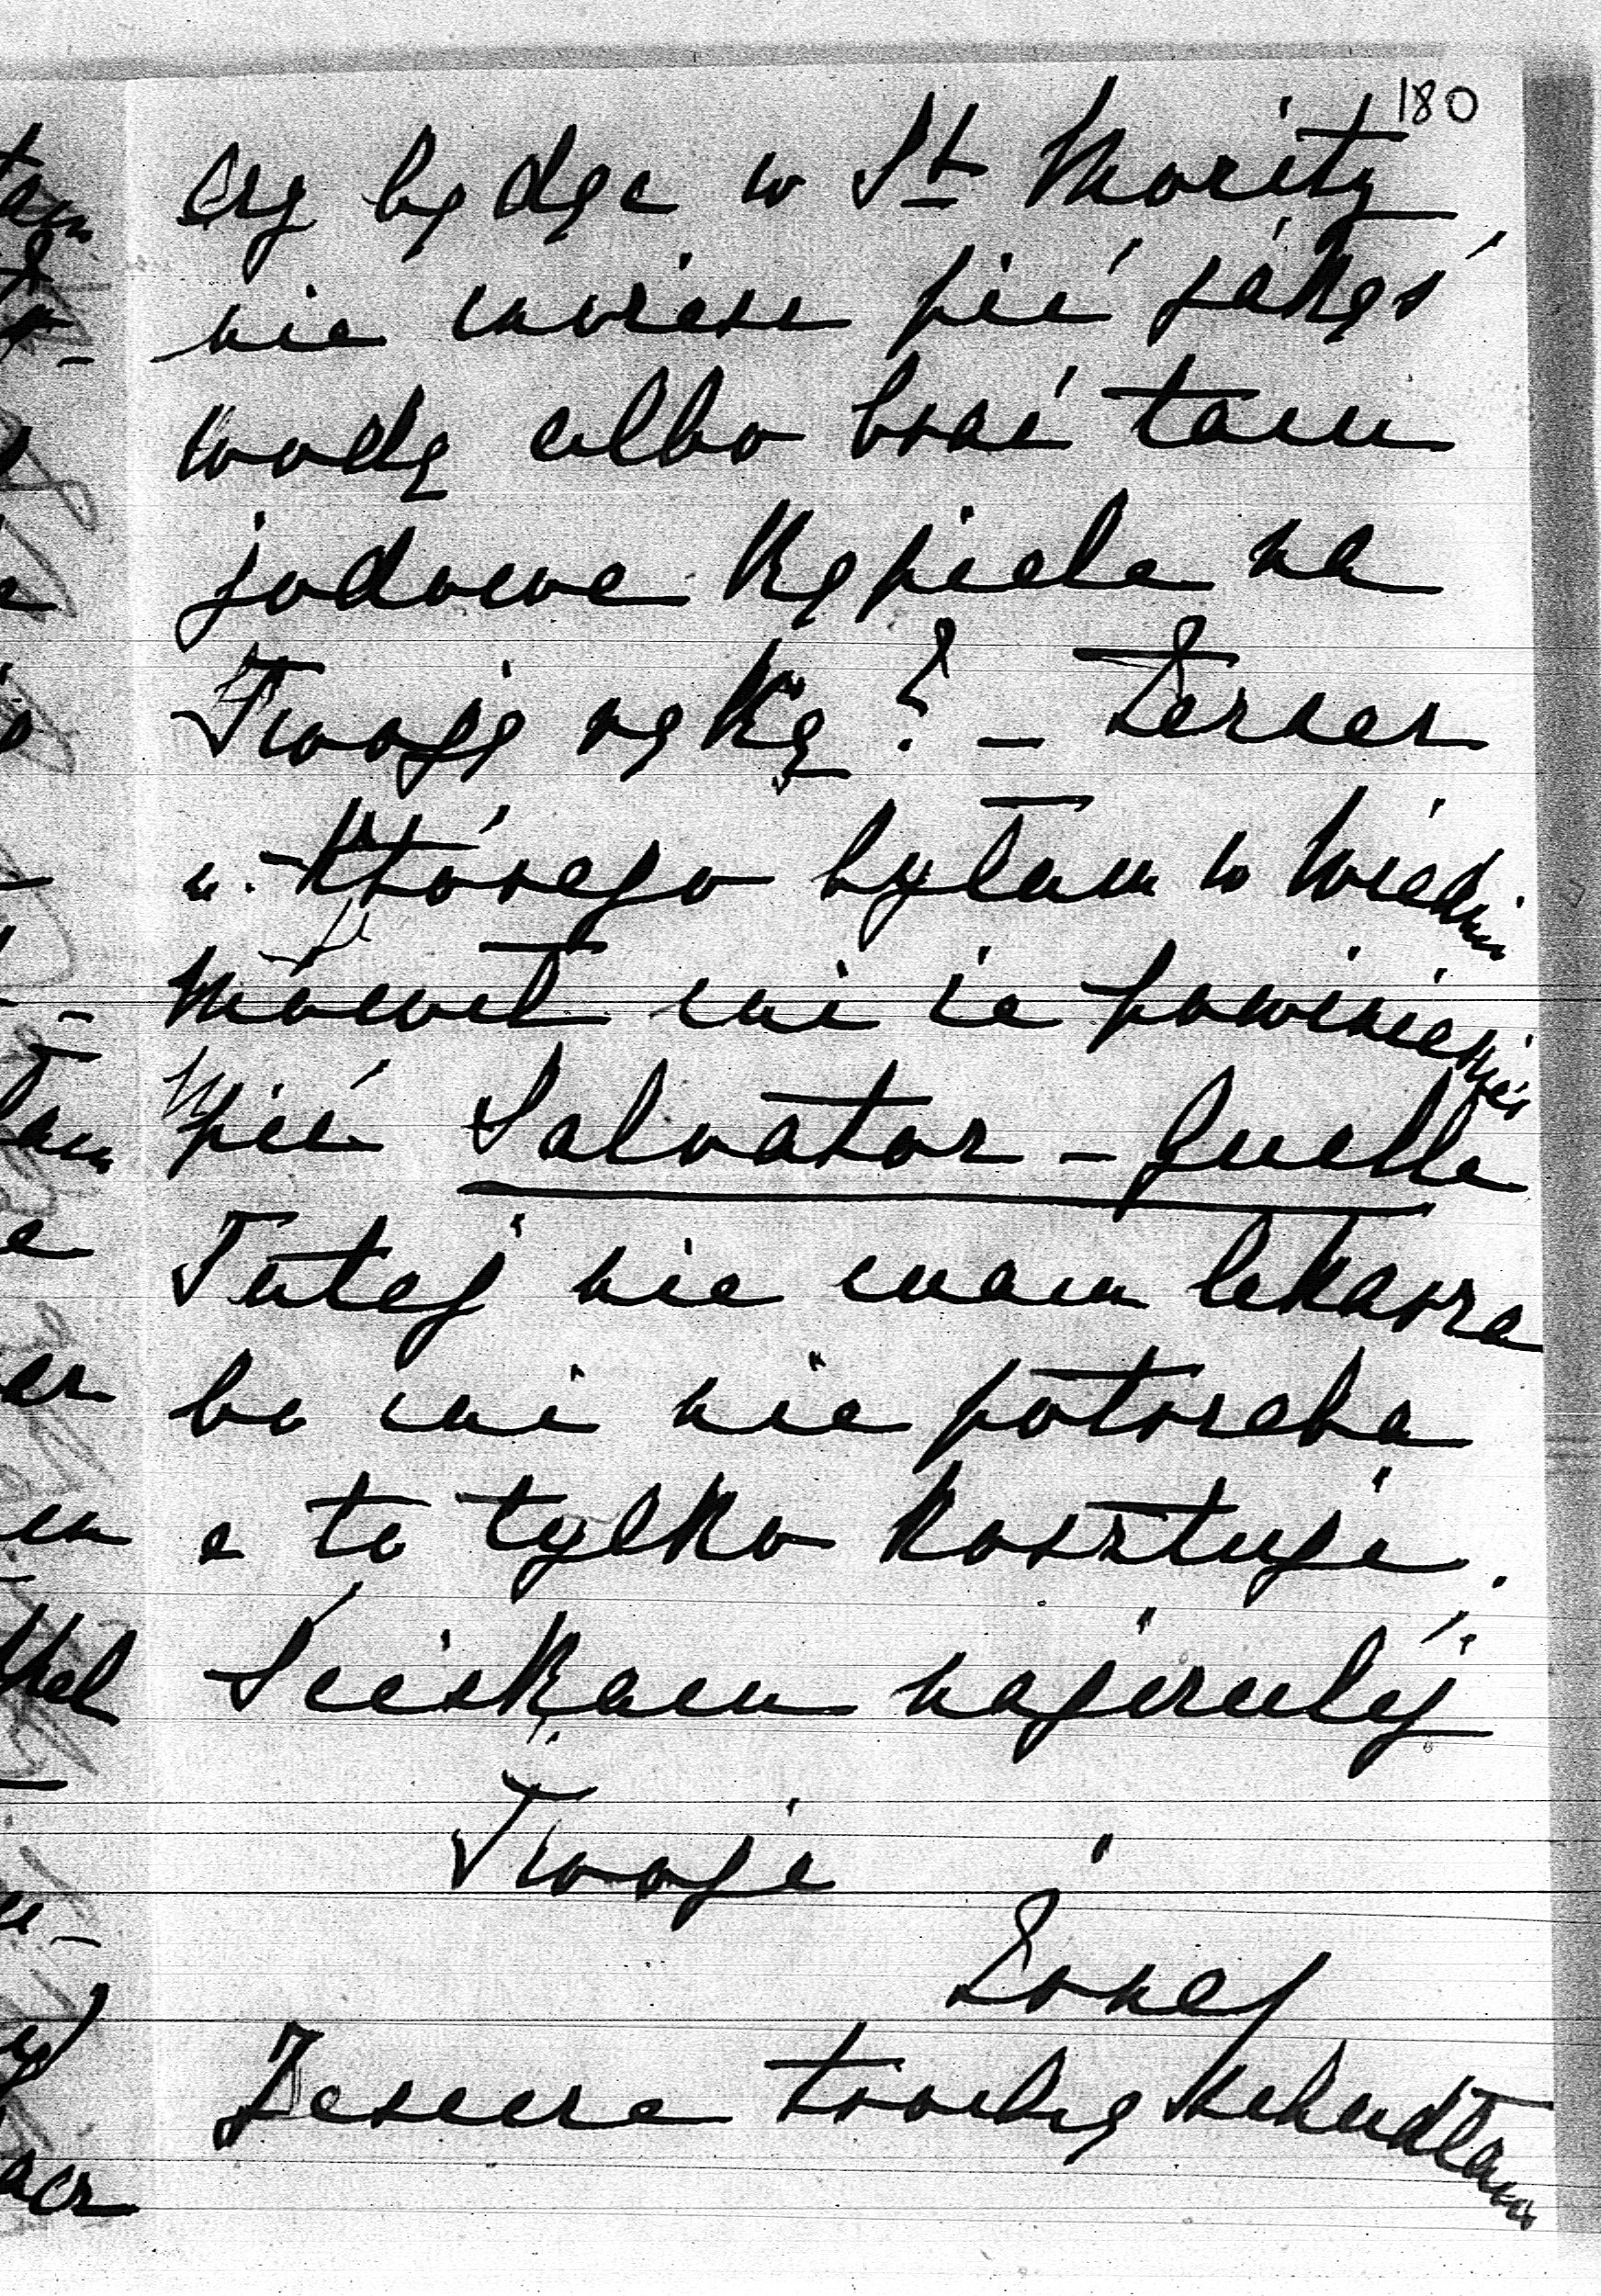 180
czy będąc w St Moritz
nie możesz pić jakąś
wodę albo brać tam
jodowe kąpiele na
Twoję rękę? – Lerser
u którego byłam w Wiedniu
mówił mi że powinieneś
pić Salvator-Quelle
Tutej nie mam lekarza
bo mi nie potrzeba
a to tylko kosztuje.
Ściskam najczuléj
Twoja
Zonej
Jeszcze trochę schudłam